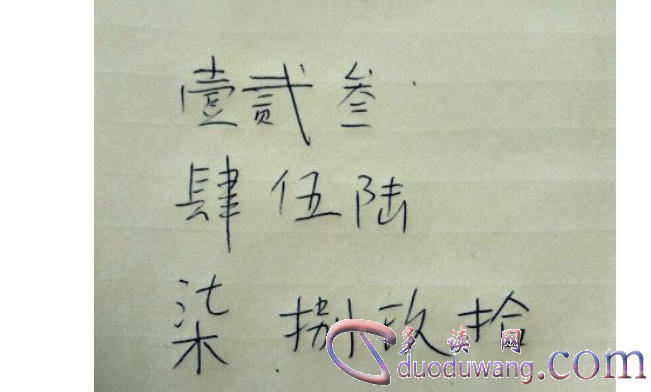 壹贰叁
肆伍陆
柒捌玖拾
多读网
duoduwang.com